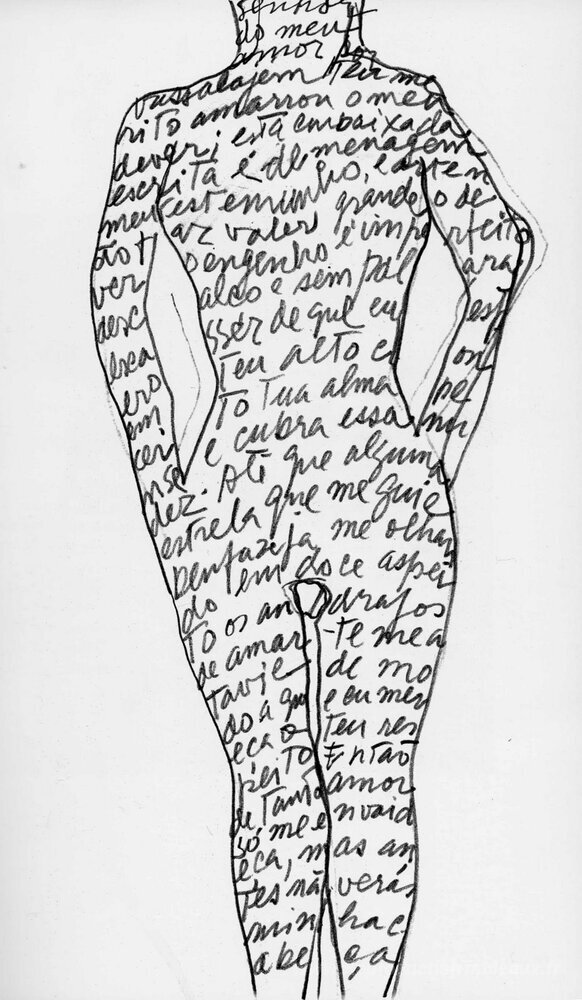 senhor
do meu
amor por
vassalagem Teu mé
rito amarrou o meu
dever i esta embaixada
escrita é de menagem
meu testemunho, e a arte n
ão t az valer grande o de
ver o engenho é imperfeito
desc alço e sem pal ara
exca sser de que eu esp
ero teu alto c on
em to tua alma pe
cer e cubra essa nu
nsa
dez. Até que alguma
estrela que me guie
benfazeja me olhar
do em doce aspei
to os an drajos
de amar -te me a
tavie de mo
do a que e eu mer
eça o teu res
peito Então
de tanto amor
só me e nvaid
eça, m as an
tes nã verás
min ha c
abe ça